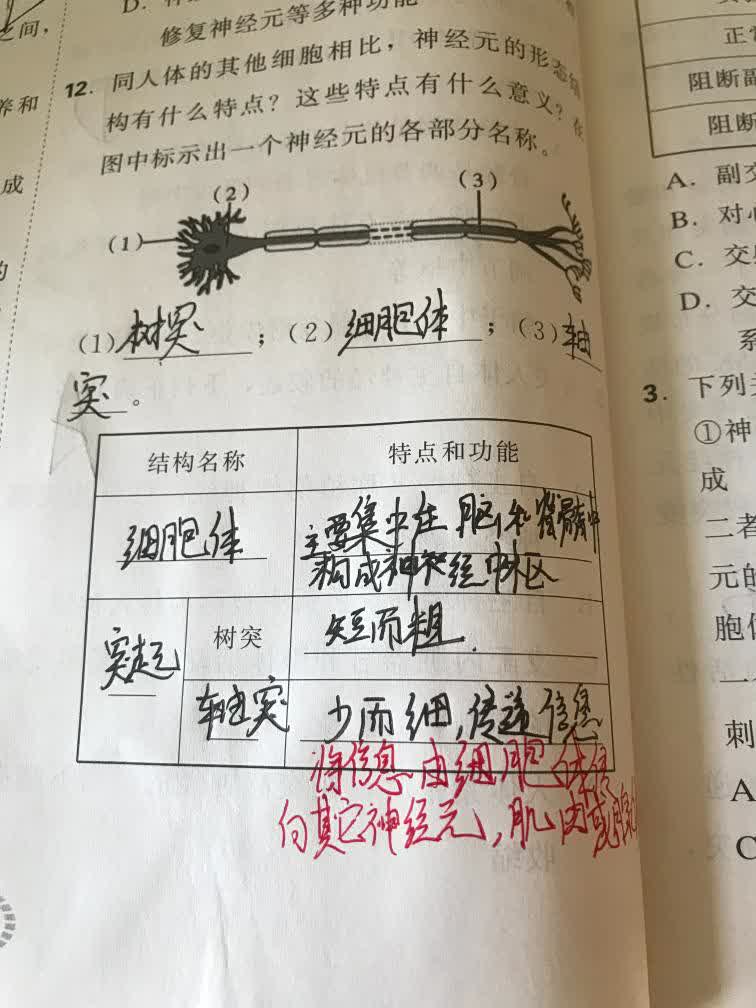 之间,
养和
成
的
D.
修复神经元等多种功能
12. 同人体的其他细胞相比，神经元的形态
构有什么特点？这些特点有什么意义？在
图中标示出一个神经元的各部分名称。
(2)
(3)
(1)
(1)树突；(2)细胞体；(3)轴
突。
结构名称 特点和功能
细胞体 主要集中在脑和脊髓中
构成神经中枢区
突起 树突 短而粗.
轴突 少而细,传递信息
将信息由细胞体传
向其它神经元,肌肉或腺体
收缩
正常
阻断副
阻断
A. 副交
B. 对心
C. 交
D. 交
系
3. 下列
①神
成
二者
元的
胞
一
刺
A
C